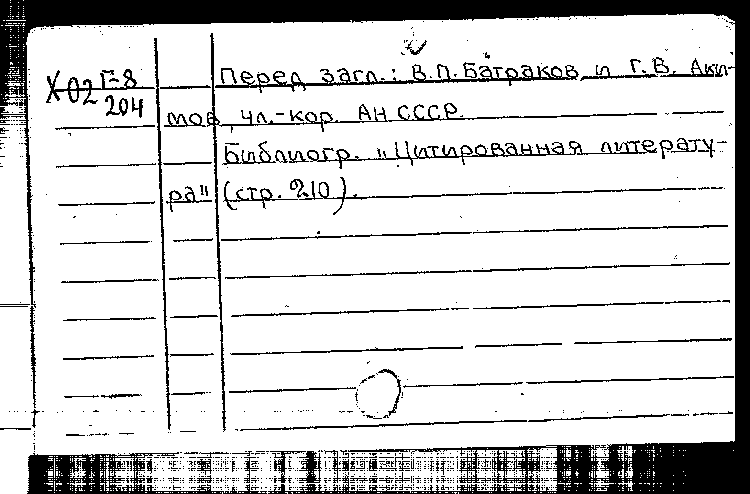 Х02 Г-8
204
Перед загл.: В.П. Батраков и Г.В. Аки-
мов, чл.-кор. АН СССР.
Библиогр. „Цитированная литерату-
ра" (стр. 210).